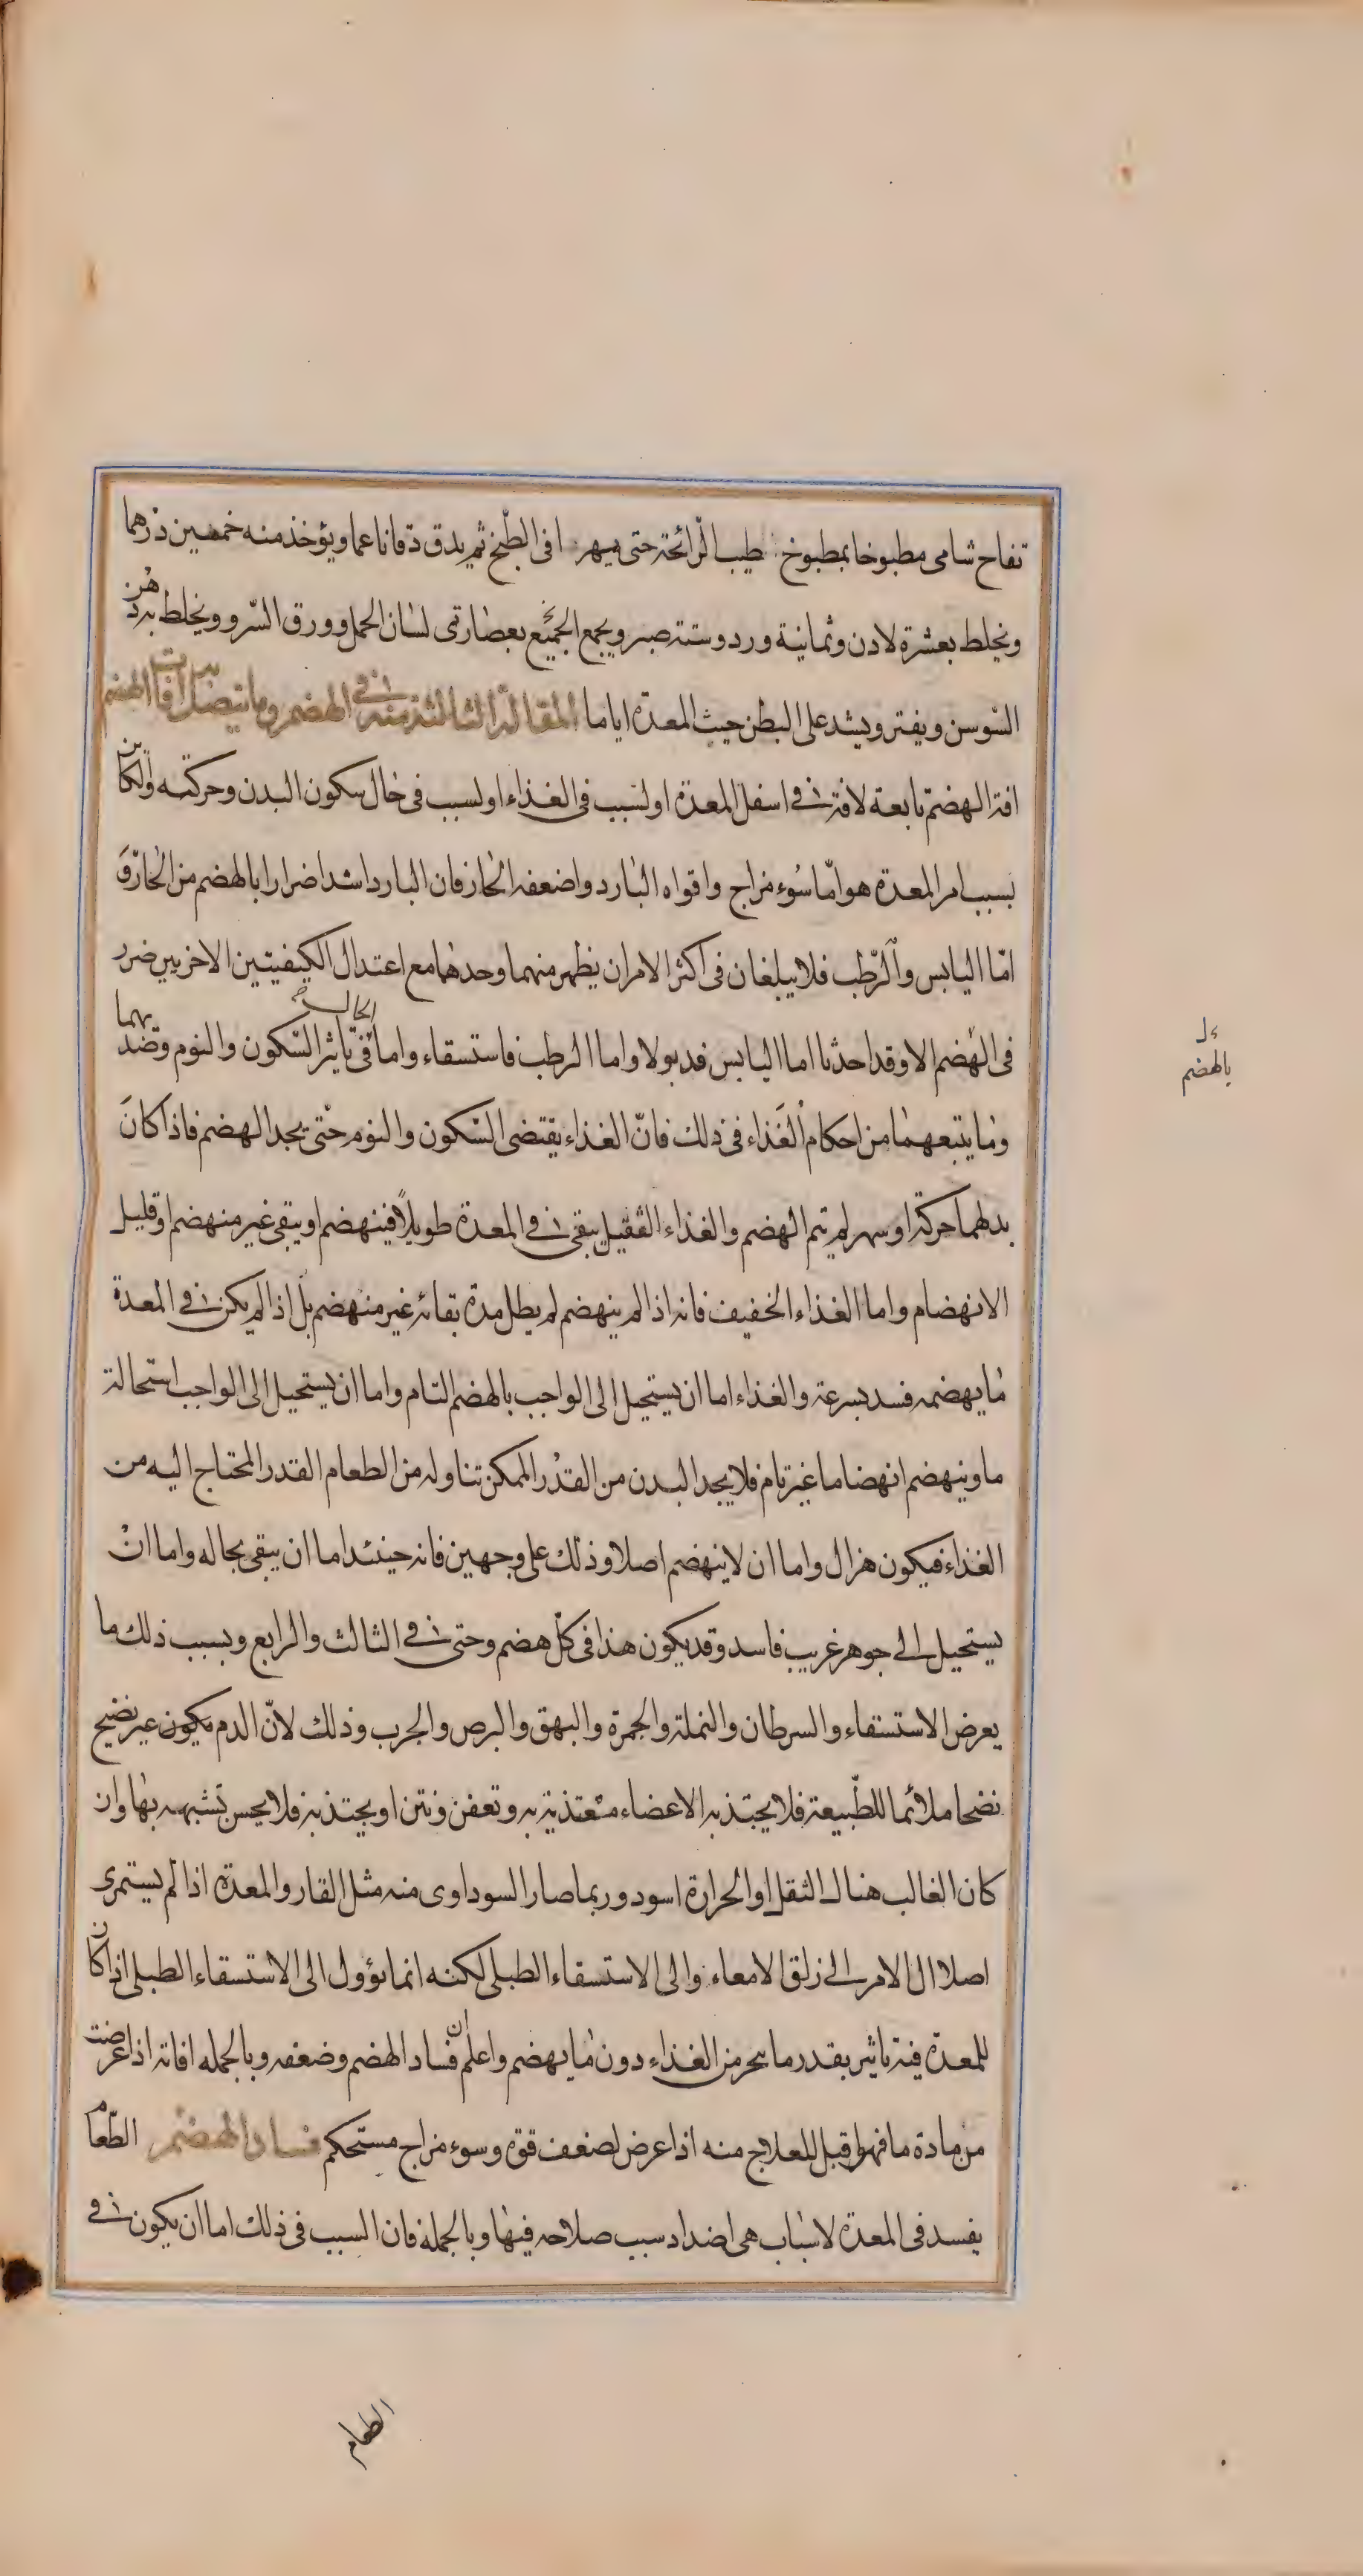 تفاح شامى مطبوخا بمطبوخ طيب الرّائحة حتى يتهر افى الطّبخ ثم يدق دقا ناعما ويؤخذ منه خمسين درهما
ويخلط بعشرة لادن وثمانية ورد وستة صبر ويجمع الجميع بعصارتى لسان الحمل وورق السّرو ويخلط بدهن
السّوسن ويفتر ويشد على البطن حيث المعدة اياما المقالة الثالثة منه فى الهضم وما يتصل به افات الهضم
افة الهضم تابعة لافة فى اسفل المعدة او لسبب فى الغذاء او لسبب فى حال سكون البدن وحركته والكائن
بسبب امر المعدة هو امّا سوء مزاج واقواه البارد واضعفه الحار فان البارد اشد اضرارا بالهضم من الحارّ وَ
امّا اليابس والرّطب فلا يبلغان فى اكثر الامر ان يظهر منهما وحدهما مع اعتدال الكيفيتين الاخريين ضرر
فى الهضم الا وقد احدثا اما اليابس فدبولا واما الرطب فاستسقاء واما الحال فى تاثر السّكون والنوم وضدهما
وما يتبعهما من احكام الغذاء فى ذلك فانّ الغذاء يقتضى السّكون والنوم حتى يجد الهضم فاذا كانَ
بدلهما حركة او سهر لم يتم الهضم والغذاء الثقيل يبقى فى المعدة طويلاً فينهضم او يبقى غير منهضم او قليل
الانهضام واما الغذاء الخفيف فانه اذا لم ينهضم لم يطل مدة بقائه غير منهضم بل اذا لم يكن فى المعدة
ما يهضمه فسد بسرعة والغذاء اما ان يستحيل الى الواجب بالهضم التام واما ان يستحيل الى الواجب استحالة
ما وينهضم انهضاما غير تام فلا يجد البدن من القدر الممكن تناوله من الطعام القدر المحتاج اليه من
الغذاء فيكون هزال واما ان لا ينهضم اصلا وذلك على وجهين فانه حينئذ اما ان يبقى بحاله واما ان
يستحيل الى جوهر غريب فاسد وقد يكون هذا فى كلّ هضم وحتى فى الثالث والرابع وبسبب ذلك ما
يعرض الاستسقاء والسرطان والنملة والجمرة والبهق والبرص والجرب وذلك لانّ الدم يكون غير نضيج
نضجا ملائما للطّبيعة فلا يجتذبه الاعضاء مغتذية به وتعفن ونتن او يجتذبه فلا يحسن تشبهه بها وان
كان الغالب هناك الثقل او الحرارة اسود وربما صار السوداوى منه مثل القار والمعدة اذا لم يستمرى
اصلا ال الامر الى زلق الامعاء والى الاستسقاء الطبلى لكنه انما يؤول الى الاستسقاء الطبلى اذا كان
للمعدة فيه تاثير بقدر ما يبخر من الغذاء دون ما يهضم واعلم ان فساد الهضم وضعفه وبالجمله افاته اذا عرضت
من مادة ما فهو اقبل للعلاج منه اذا عرض لضعف قوة وسوء مزاج مستحكم فساد الهضم الطّعام
يفسد فى المعدة لاسباب هى اضداد سبب صلاحه فيها وبالجملة فان السبب فى ذلك اما ان يكون فى
بالهضم
الطعام